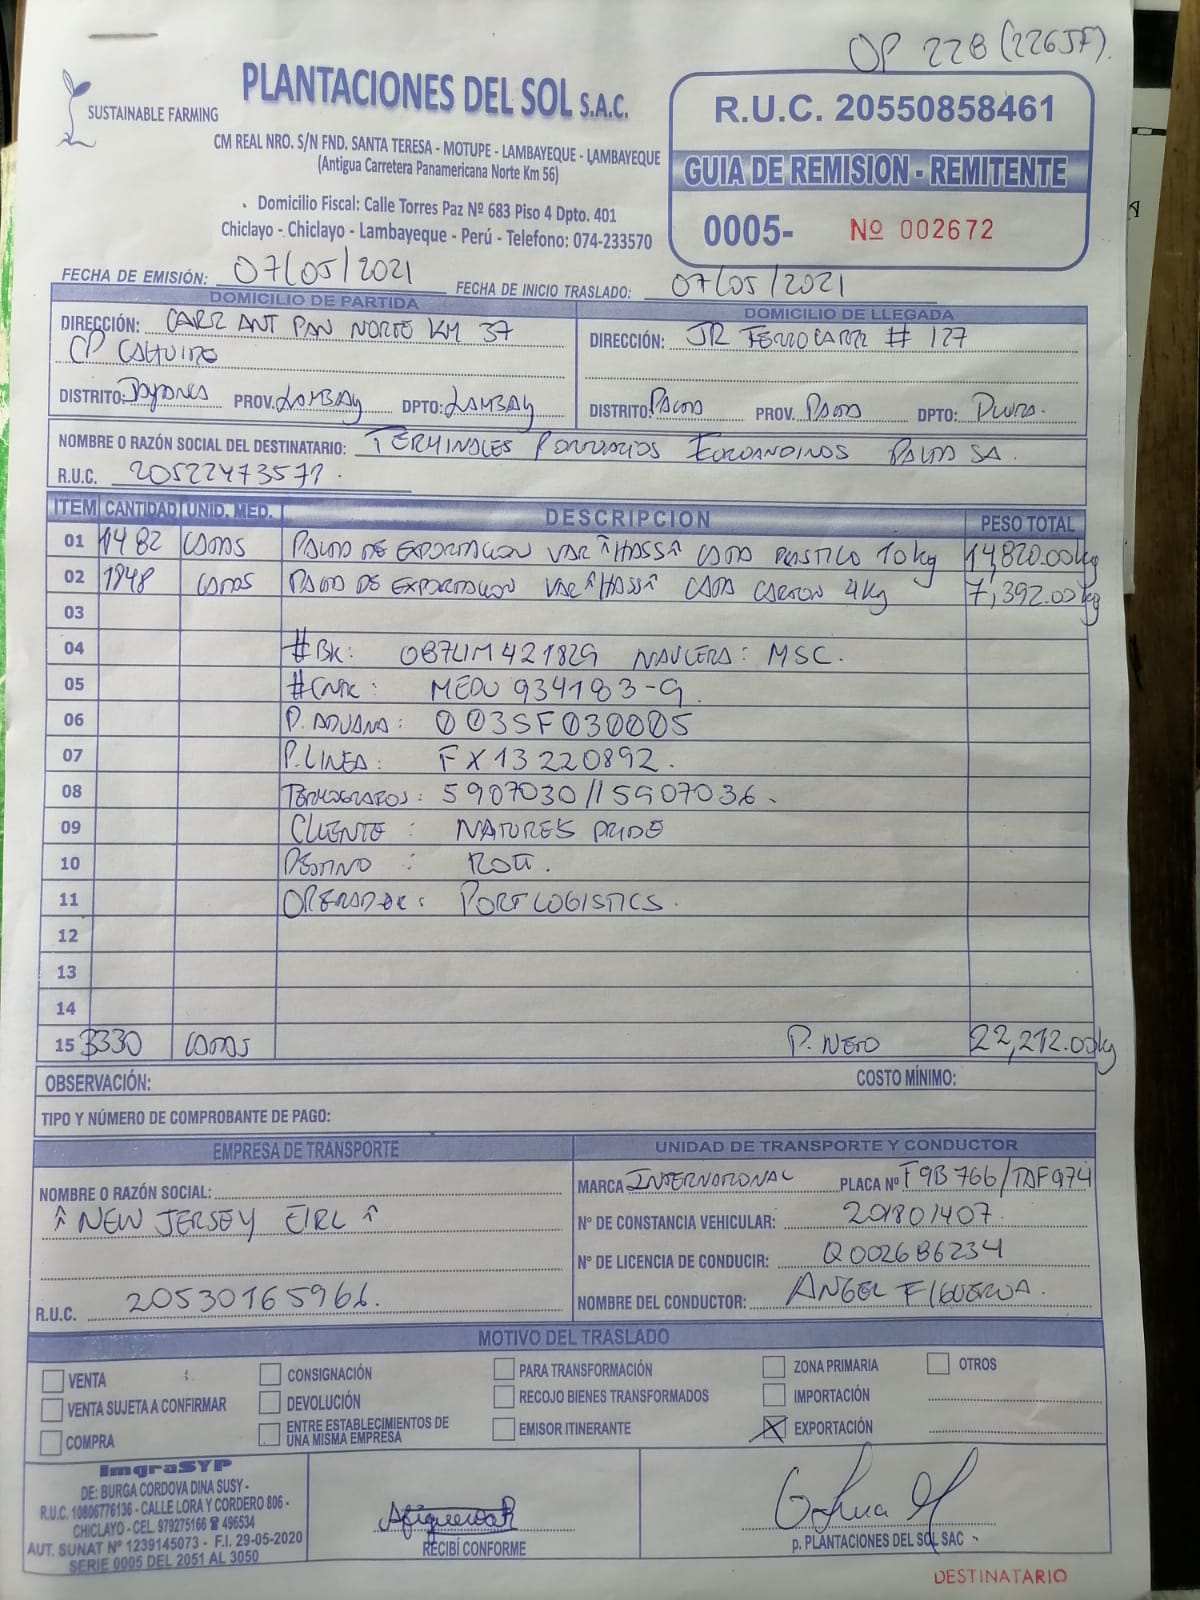 OP 228 (226JF).
SUSTAINABLE FARMING
PLANTACIONES DEL SOL S.A.C.
CM REAL NRO. S/N FND. SANTA TERESA - MOTUPE - LAMBAYEQUE - LAMBAYEQUE
(Antigua Carretera Panamericana Norte Km 56)
Domicilio Fiscal: Calle Torres Paz Nº 683 Piso 4 Dpto. 401
Chiclayo - Chiclayo - Lambayeque - Perú - Telefono: 074-233570
R.U.C. 20550858461
GUIA DE REMISION - REMITENTE
0005- Nº 002672
FECHA DE EMISIÓN: 07/05/2021 FECHA DE INICIO TRASLADO: 07/05/2021
DOMICILIO DE PARTIDA
DIRECCIÓN: CARR ANT PAN NORTE KM 37
CP
DISTRITO: PROV. LAMBAY DPTO: LAMBAY
DOMICILIO DE LLEGADA
DIRECCIÓN: JR FERROCARR # 127
DISTRITO: PAITA PROV. PAITA DPTO: PIURA.
NOMBRE O RAZÓN SOCIAL DEL DESTINATARIO: TERMINALES PORTUARIOS EUROANDINOS PAITA SA.
R.U.C. 20522473571.
ITEM CANTIDAD UNID. MED. DESCRIPCION PESO TOTAL
01 1482 CAJAS PALTA DE EXPORTACION VAR "HASS" CAJA PLASTICO 10kg 14,820.00kg
02 1848 CAJAS PALTA DE EXPORTACION VAR "HASS" CAJA CARTON 4kg 7,392.00kg
03
04 #BK: NAVIERA: MSC.
05 #CNTR: MEDU 934183-9.
06 P. ADUANA: 003SF030005
07 P. LINEA: FX13220892.
08 TERMOGRAFOS: 5907030//5907036.
09 CLIENTE: NATURES PRIDE
10 DESTINO: ROTT.
11 OPERADOR: PORTLOGISTICS.
12
13
14
15 3330 CAJAS P. NETO 22,212.00kg
OBSERVACIÓN: COSTO MÍNIMO:
TIPO Y NÚMERO DE COMPROBANTE DE PAGO:
EMPRESA DE TRANSPORTE
NOMBRE O RAZÓN SOCIAL:
"NEW JERSEY EIRL"
R.U.C. 20530165966.
UNIDAD DE TRANSPORTE Y CONDUCTOR
MARCA INTERNATIONAL PLACA Nº F9B766/TAF974
Nº DE CONSTANCIA VEHICULAR: 201801407
Nº DE LICENCIA DE CONDUCIR: Q002686234
NOMBRE DEL CONDUCTOR: ANGEL FIGUEROA.
MOTIVO DEL TRASLADO
VENTA CONSIGNACIÓN PARA TRANSFORMACIÓN ZONA PRIMARIA OTROS
VENTA SUJETA A CONFIRMAR DEVOLUCIÓN RECOJO BIENES TRANSFORMADOS IMPORTACIÓN
COMPRA ENTRE ESTABLECIMIENTOS DE UNA MISMA EMPRESA EMISOR ITINERANTE X EXPORTACIÓN
ImgraSYP
DE: BURGA CORDOVA DINA SUSY -
R.U.C. 10806776136 - CALLE LORA Y CORDERO 806 -
CHICLAYO - CEL. 979275166 ☎ 496534
AUT. SUNAT Nº 1239145073 - F.I. 29-05-2020
SERIE 0005 DEL 2051 AL 3050
RECIBÍ CONFORME
p. PLANTACIONES DEL SOL SAC
DESTINATARIO